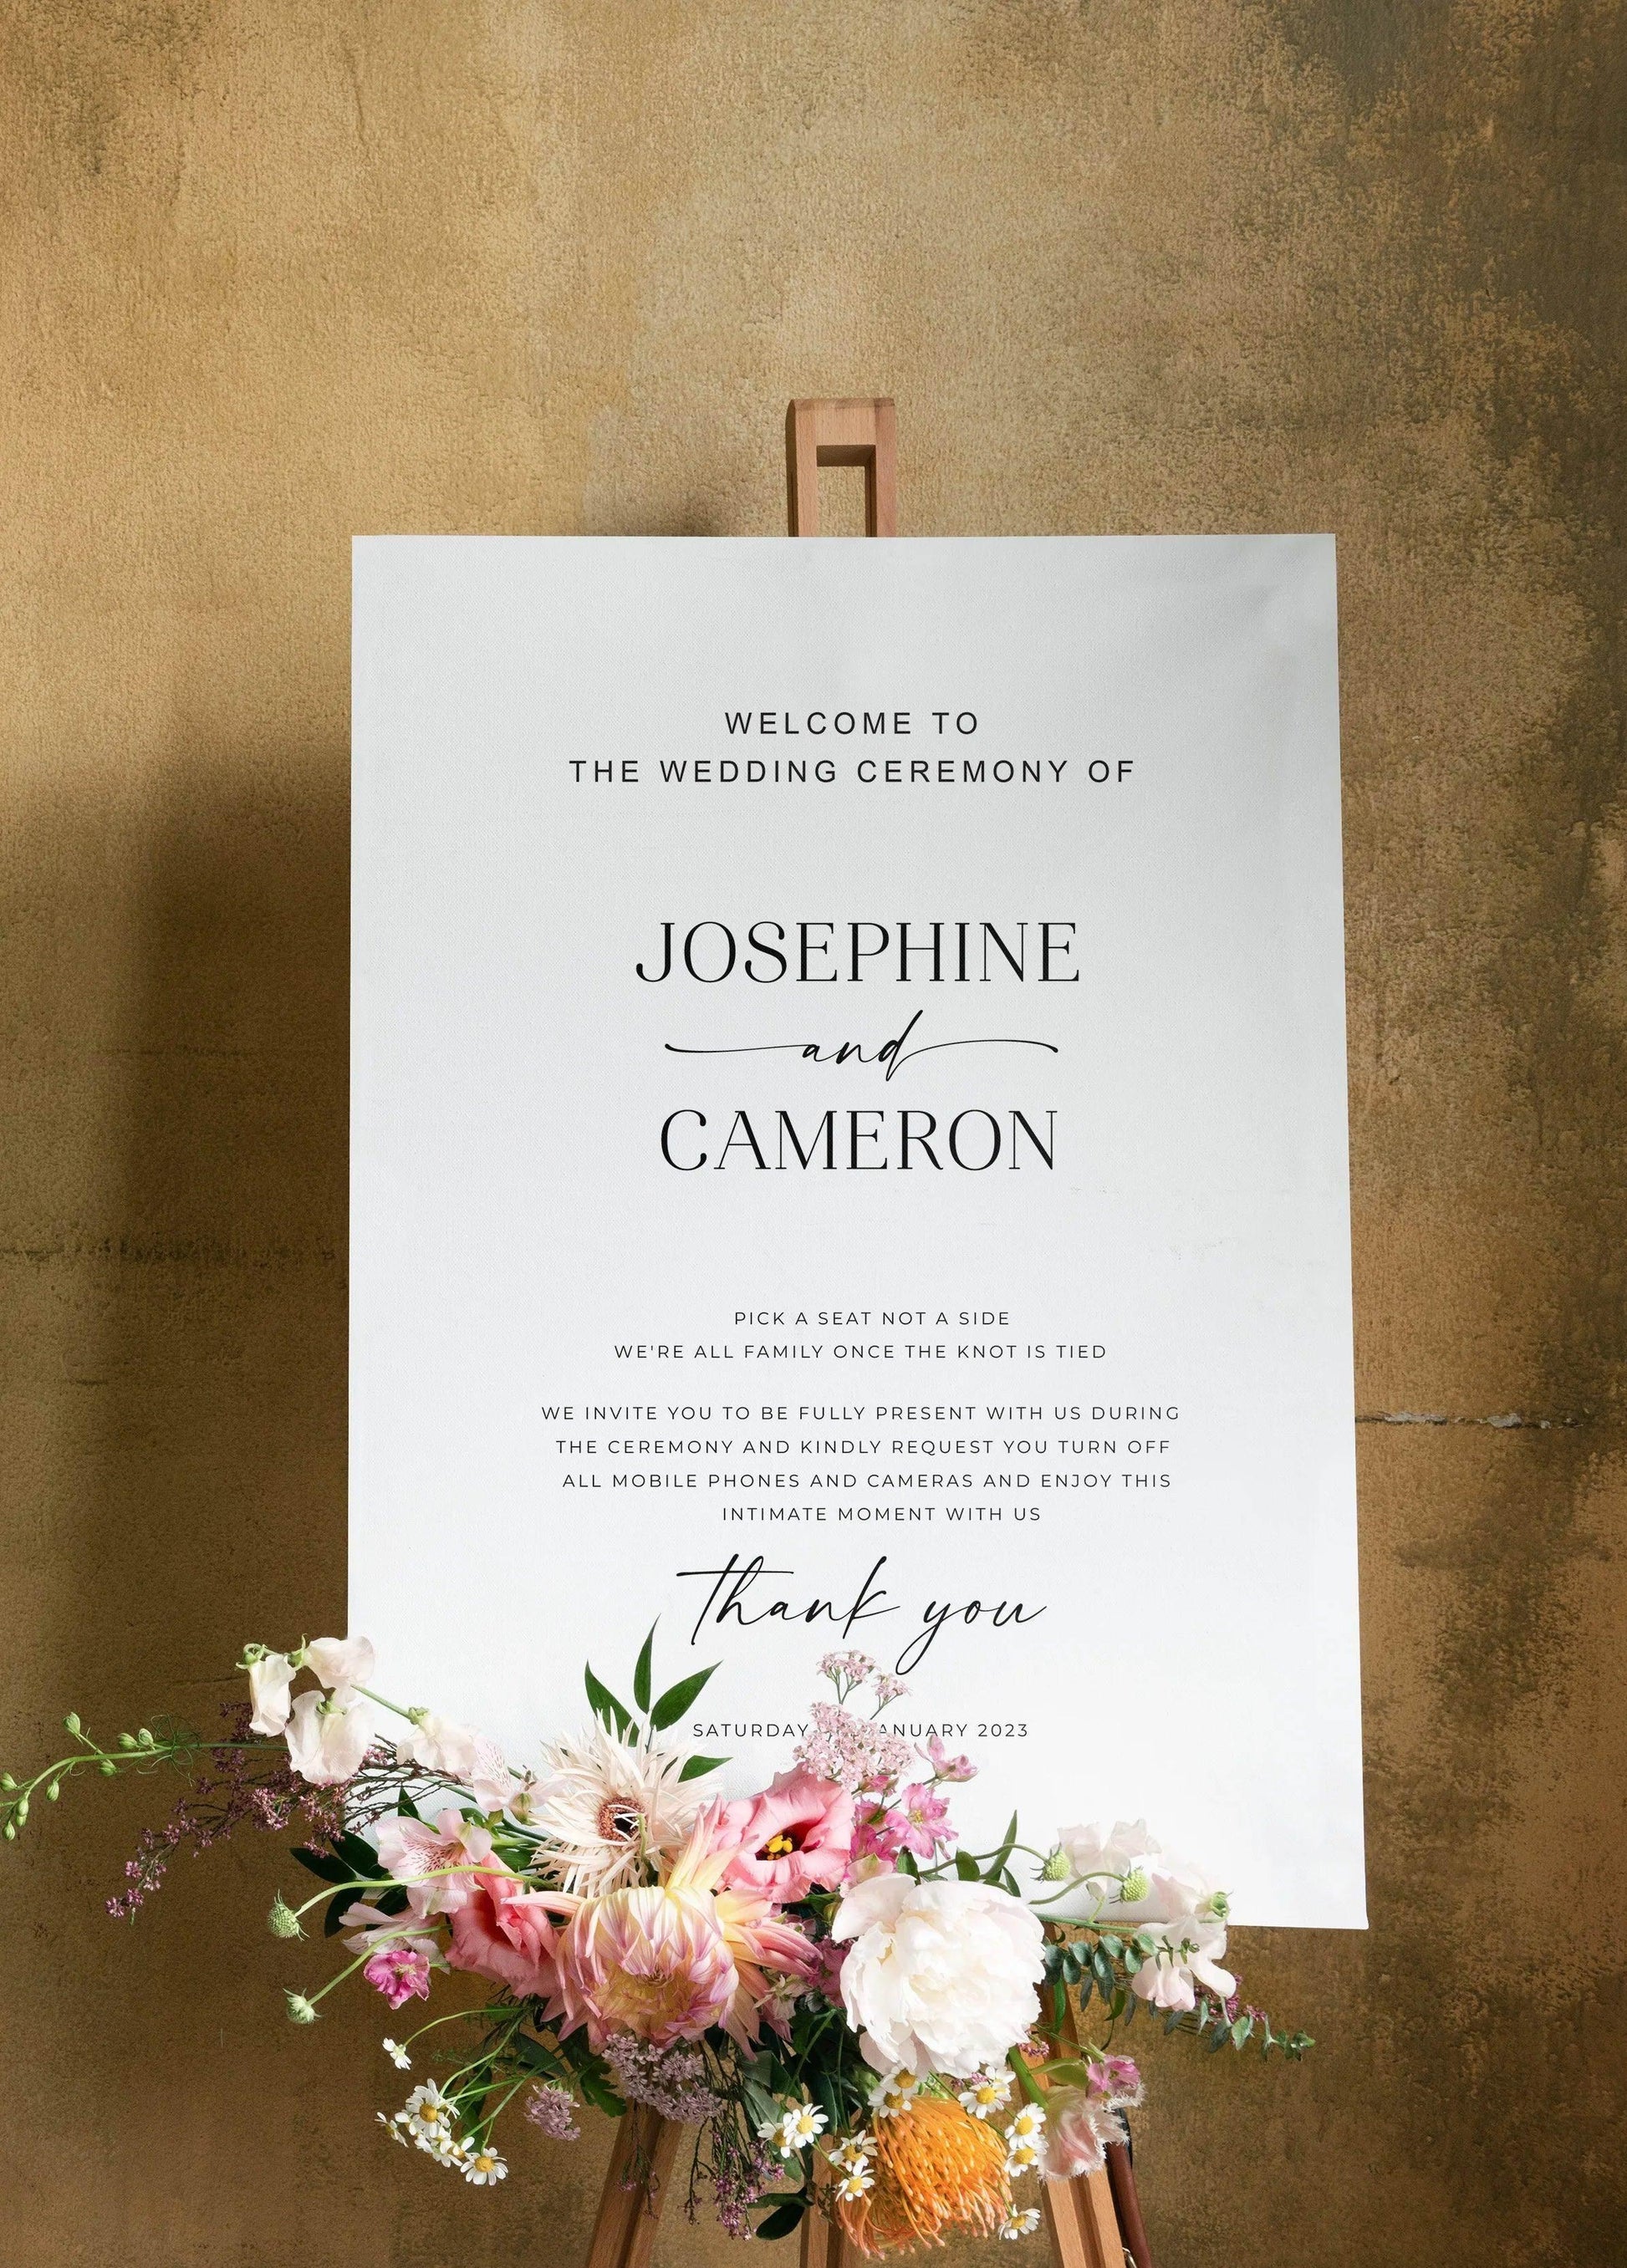 WELCOME TO
THE WEDDING CEREMONY OF
JOSEPHINE
and
CAMERON
PICK A SEAT NOT A SIDE
WE'RE ALL FAMILY ONCE THE KNOT IS TIED
WE INVITE YOU TO BE FULLY PRESENT WITH US DURING
THE CEREMONY AND KINDLY REQUEST YOU TURN OFF
ALL MOBILE PHONES AND CAMERAS AND ENJOY THIS
INTIMATE MOMENT WITH US
thank you
SATURDAY ANUARY 2023